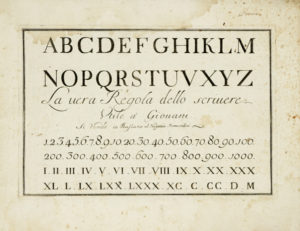 ABCDEFGHIKLM
NOPQRSTUVXYZ
La vera Regola dello scrivere
Utile a' Giovani
Si Vende in Bassano
1.2.3.4.5.6.7.8.9.10.20.30.40.50.60.70.80.90.100.
200.300.400.500.600.700.800.900.1000.
I. II. III. IV. V. VI. VII. VIII. IX. X. XX. XXX
XL. L. LX. LXX. LXXX. XC. C. CC. D. M